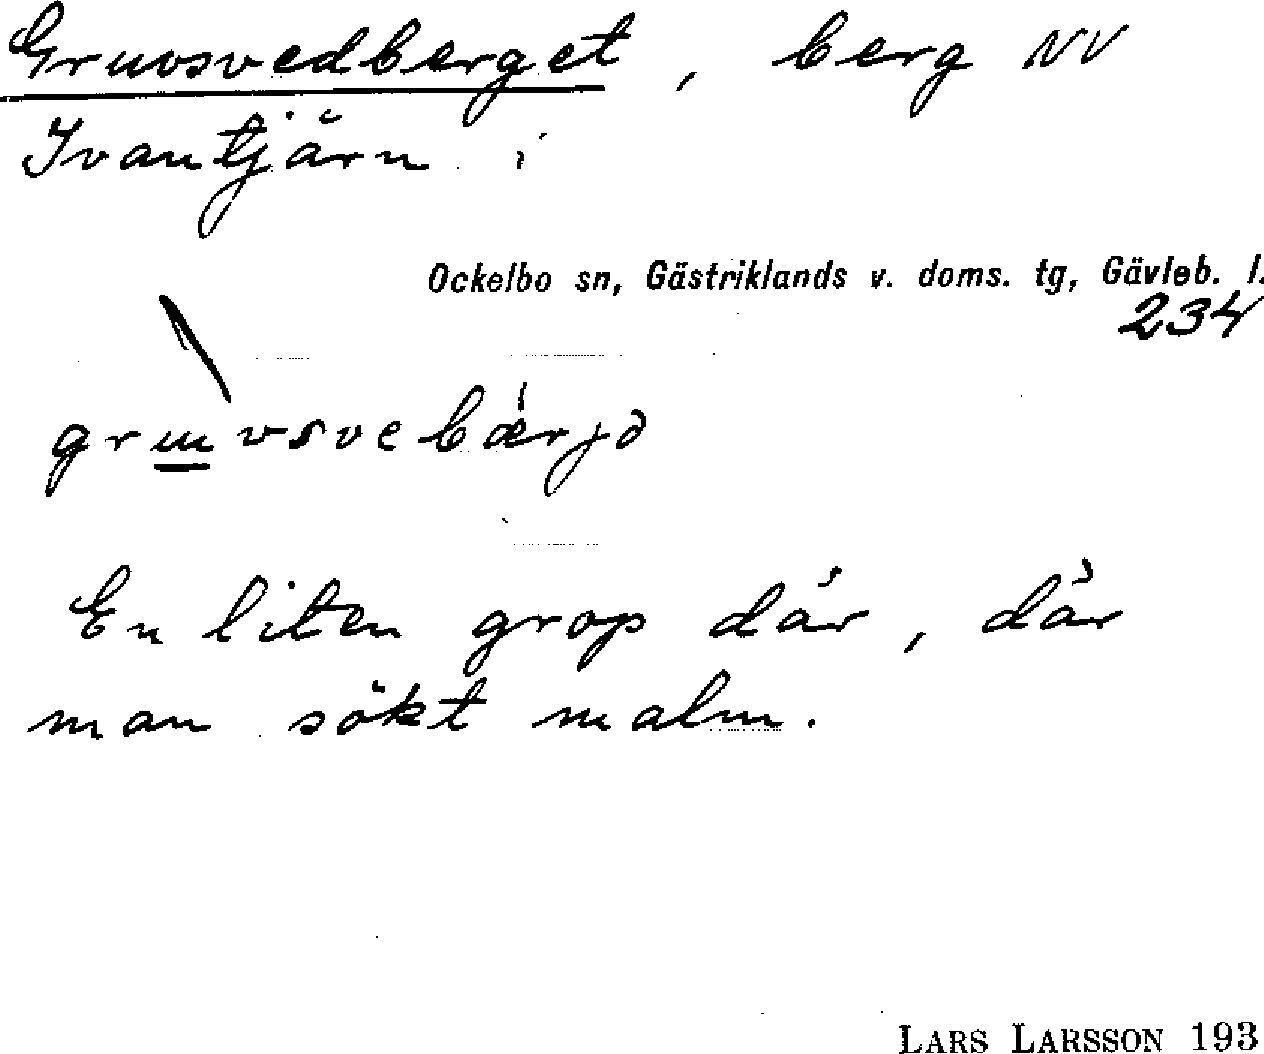 Gruvsvedberget, berg NV
Ivantjärn i
Ockelbo sn, Gästriklands v. doms. tg, Gävleb. l.
234
En liten grop där, där
man sökt malm.
LARS LARSSON 193